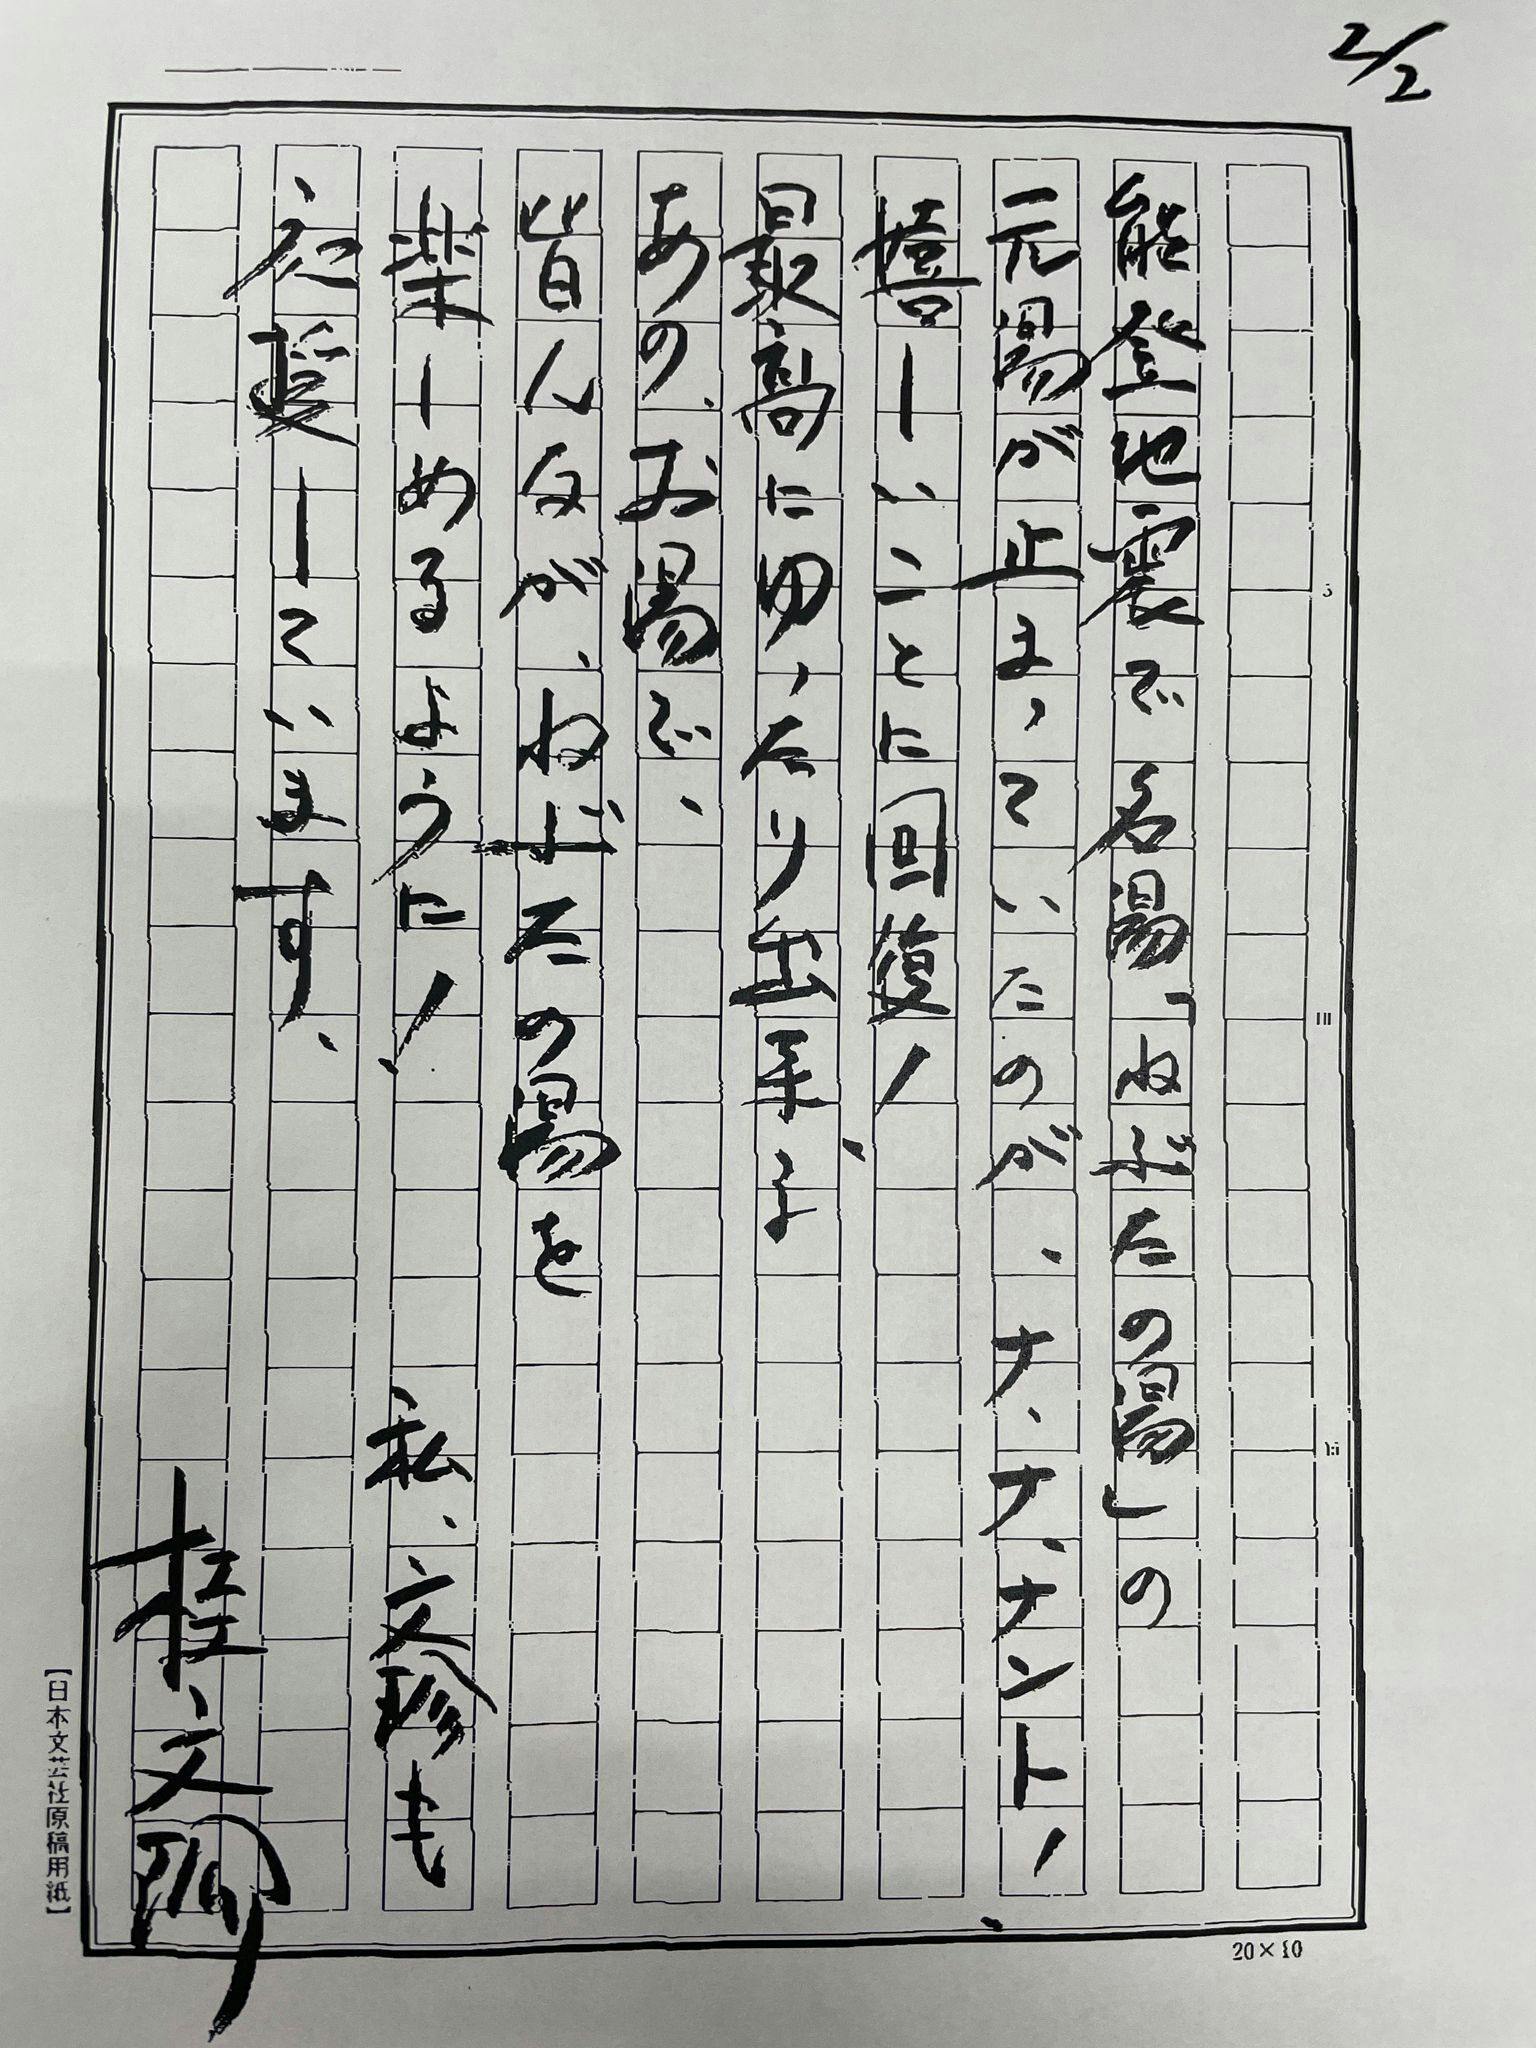 2/2
能登地震で名湯「ねぶたの湯」の
元湯が止まっていたのが、ナ、ナ、ナント！
嬉しいことに回復！
最高にゆったり出来る
あの、お湯で、
皆んなが、ねぶたの湯を
楽しめるように！　私、文珍も
応援しています、
桂文珍
5
10
15
20×10
【日本文芸社原稿用紙】